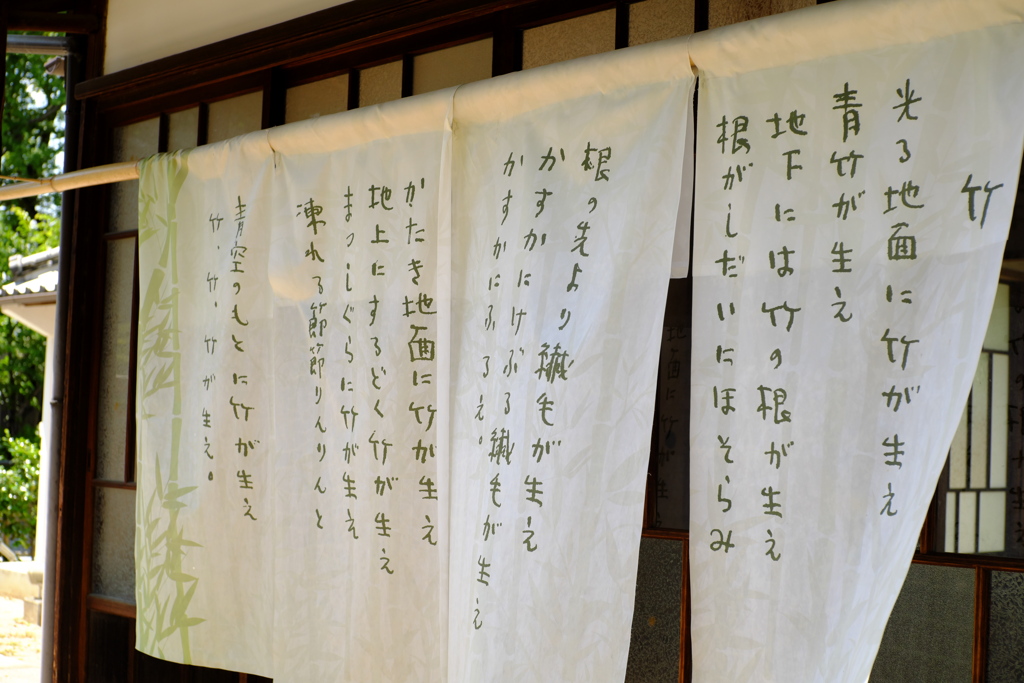 竹
光る地面に竹が生え
青竹が生え
地下には竹の根が生え
根がしだいにほそらみ
根の先より繊毛が生え
かすかにけぶる繊毛が生え
かすかにふるえ。
かたき地面に竹が生え
地上にするどく竹が生え
まっしぐらに竹が生え
凍れる節節りんりんと
青空のもとに竹が生え
竹、竹、竹が生え。